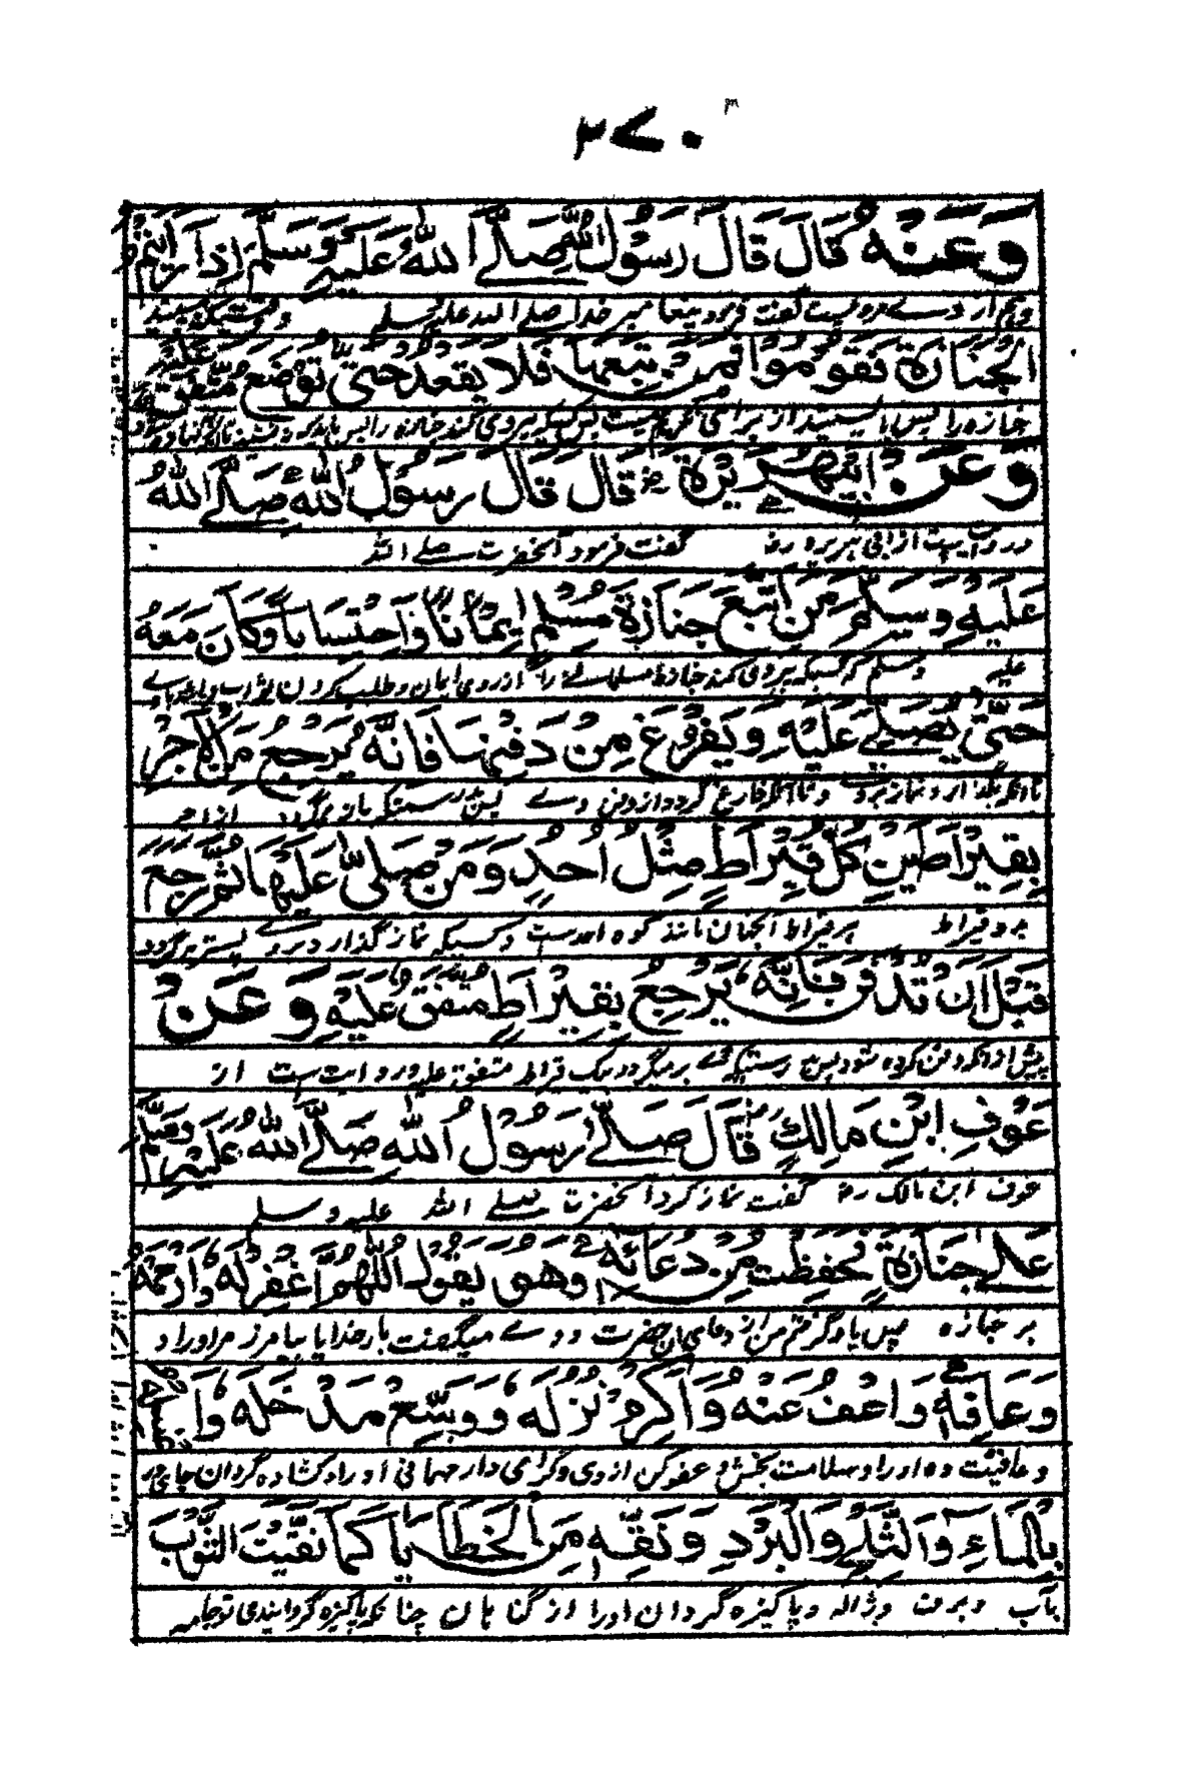 ٣٧٠
وَعَنْهُ قَالَ قَالَ رَسُولُ اللهِ صَلَّے اللهُ عَلَيْهِ وَسَلَّمَ إِذَا رَأَيْتُمُ
گفت فرمود پیغامبر خدا صلے الله علیه وسلم
الْجَنَازَةَ فَقُومُوْا فَمَنْ تَبِعَهَا فَلَا يَقْعُدْ حَتّٰى تُوْضَعَ مُتَّفَقٌ عَلَيْهِ
جنازه را پس بایستید از برای
وَعَنْ اَبِیْ هُرَيْرَةَ رض قَالَ قَالَ رَسُوْلُ اللهِ صَلَّے اللهُ
و روایت است از ابی هریره رض گفت فرمود آنحضرت صلے الله
عَلَيْهِ وَسَلَّمَ مَنِ اتَّبَعَ جَنَازَةَ مُسْلِمٍ اِيْمَانًا وَّاحْتِسَابًا وَكَانَ مَعَهُ
علیه وسلم کسیکه پیروی کند جنازۀ مسلمانے را از روی ایمان و طلب کردن ثواب
حَتّٰى يُصَلّٰے عَلَيْهِ وَيَفْرُغَ مِنْ دَفْنِهَا فَاِنَّهٗ يَرْجِعُ مِنَ الْاَجْرِ
و تا آنکه فارغ گردد از دفن وے
بِقِيْرَاطَيْنِ كُلُّ قِيْرَاطٍ مِثْلُ اُحُدٍ وَمَنْ صَلّٰى عَلَيْهَا ثُمَّ رَجَعَ
بدو قیراط هر قیراط آنچنان مانند کوه احد است و کسیکه نماز گذارد برو پستر برگردد
قَبْلَ اَنْ تُدْفَنَ فَاِنَّهٗ يَرْجِعُ بِقِيْرَاطٍ متفق عَلَيْهِ وَعَنْ
پیش از آنکه دفن کرده شود پس بر میگردد بیک قیراط متفق علیه و روایت است از
عَوْفِ ابْنِ مَالِكٍ رض قَالَ صَلّٰے رَسُوْلُ اللهِ صَلَّے اللهُ عَلَيْهِ وَسَلَّمَ
عوف ابن مالک رض گفت نماز کرد آنحضرت صلے الله علیه وسلم
عَلٰے جَنَازَةٍ فَحَفِظْتُ مِنْ دُعَائِهٖ وَهُوَ يَقُوْلُ اللّٰهُمَّ اغْفِرْ لَهٗ وَارْحَمْهُ
بر جنازه پس یاد گرفتم من از دعای آنحضرت و وے میگفت بار خدایا بیامرز مر او را و
وَعَافِهٖ وَاعْفُ عَنْهُ وَاَكْرِمْ نُزُلَهٗ وَوَسِّعْ مَدْخَلَهٗ وَاغْسِلْهُ
و عافیت ده او را و سلامت بخش و عفو کن از وی و گرامی دار مهمانی او را و کشاده گردان جای
بِالْمَاءِ وَالثَّلْجِ وَالْبَرَدِ وَنَقِّهٖ مِنَ الْخَطَايَا كَمَا نَقَّيْتَ الثَّوْبَ
بآب و برف و ژاله و پاکیزه گردان او را از گناهان چنانکه پاکیزه گردانیدی تو جامه